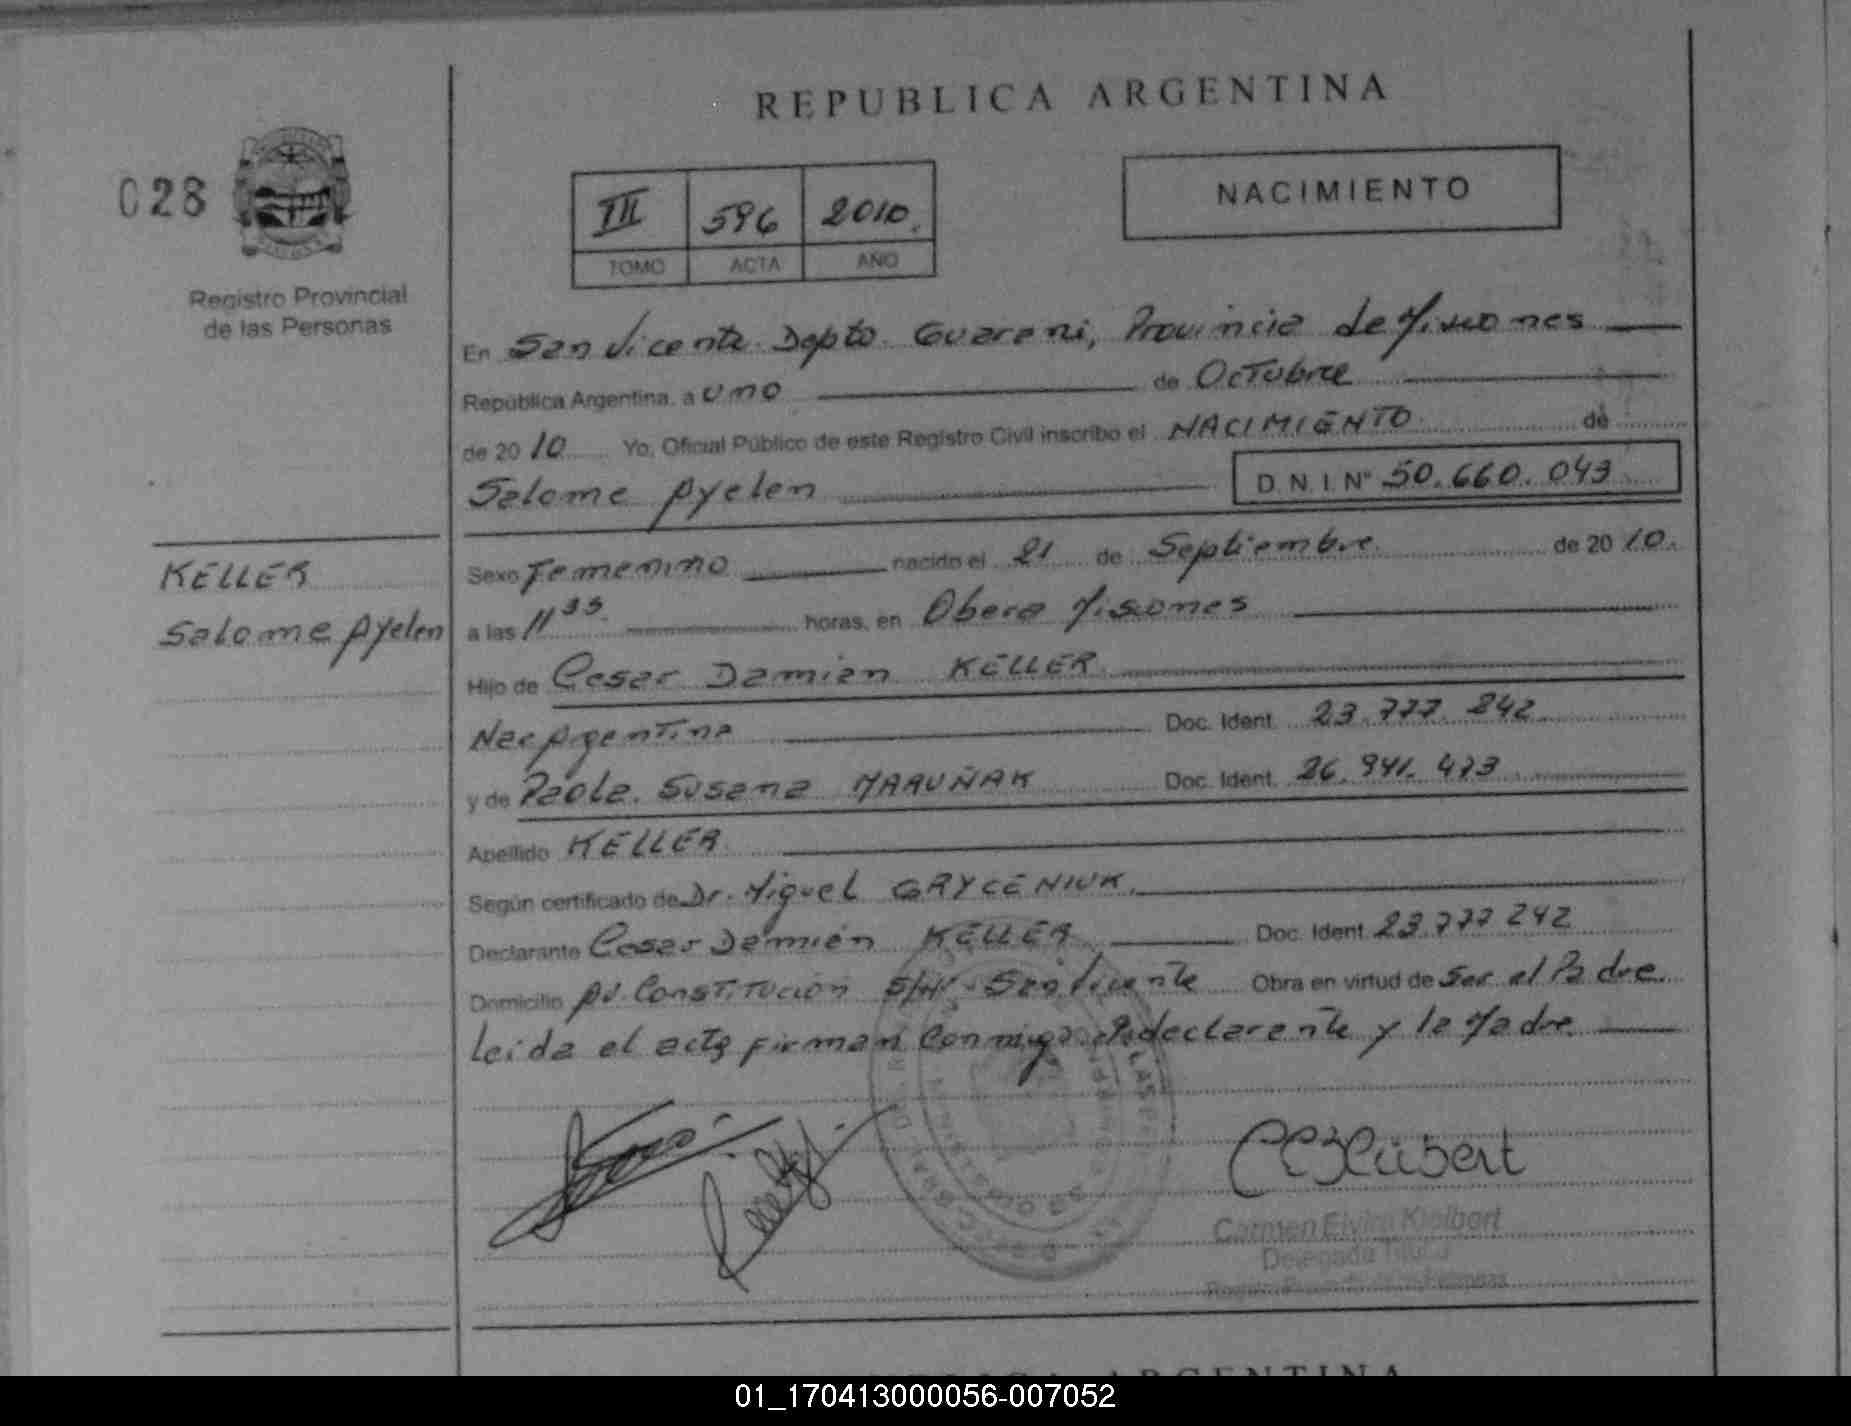 REPUBLICA ARGENTINA
028
III 596 2010.
TOMO ACTA AÑO
NACIMIENTO
Registro Provincial
de las Personas
En San Vicente Depto. Guarani, Provincia de Misiones
República Argentina, a uno de Octubre
de 2010 Yo, Oficial Público de este Registro Civil inscribo el NACIMIENTO de
Salome Ayelen D.N.I. Nº 50.660.043
KELLER
Salome Ayelen
Sexo Femenino nacido el 21 de Septiembre de 2010.
a las 11 35. horas, en Obera Misiones
Hijo de Cesar Damian KELLER
Nac Argentina Doc. Ident. 23.777.242
y de Paola Susana MARUÑAK Doc. Ident. 26.941.473
Apellido KELLER
Según certificado de Dr. Miguel GRYCENIUK.
Declarante Cesar Damián KELLER Doc. Ident. 23.777.242
Domicilio Av. Constitución S/Nº - San Vicente Obra en virtud de Ser el Padre
Leida el acta firman Conmigo el declarante y la Madre
Carmen Elvira
Delegada Titular
01_170413000056-007052